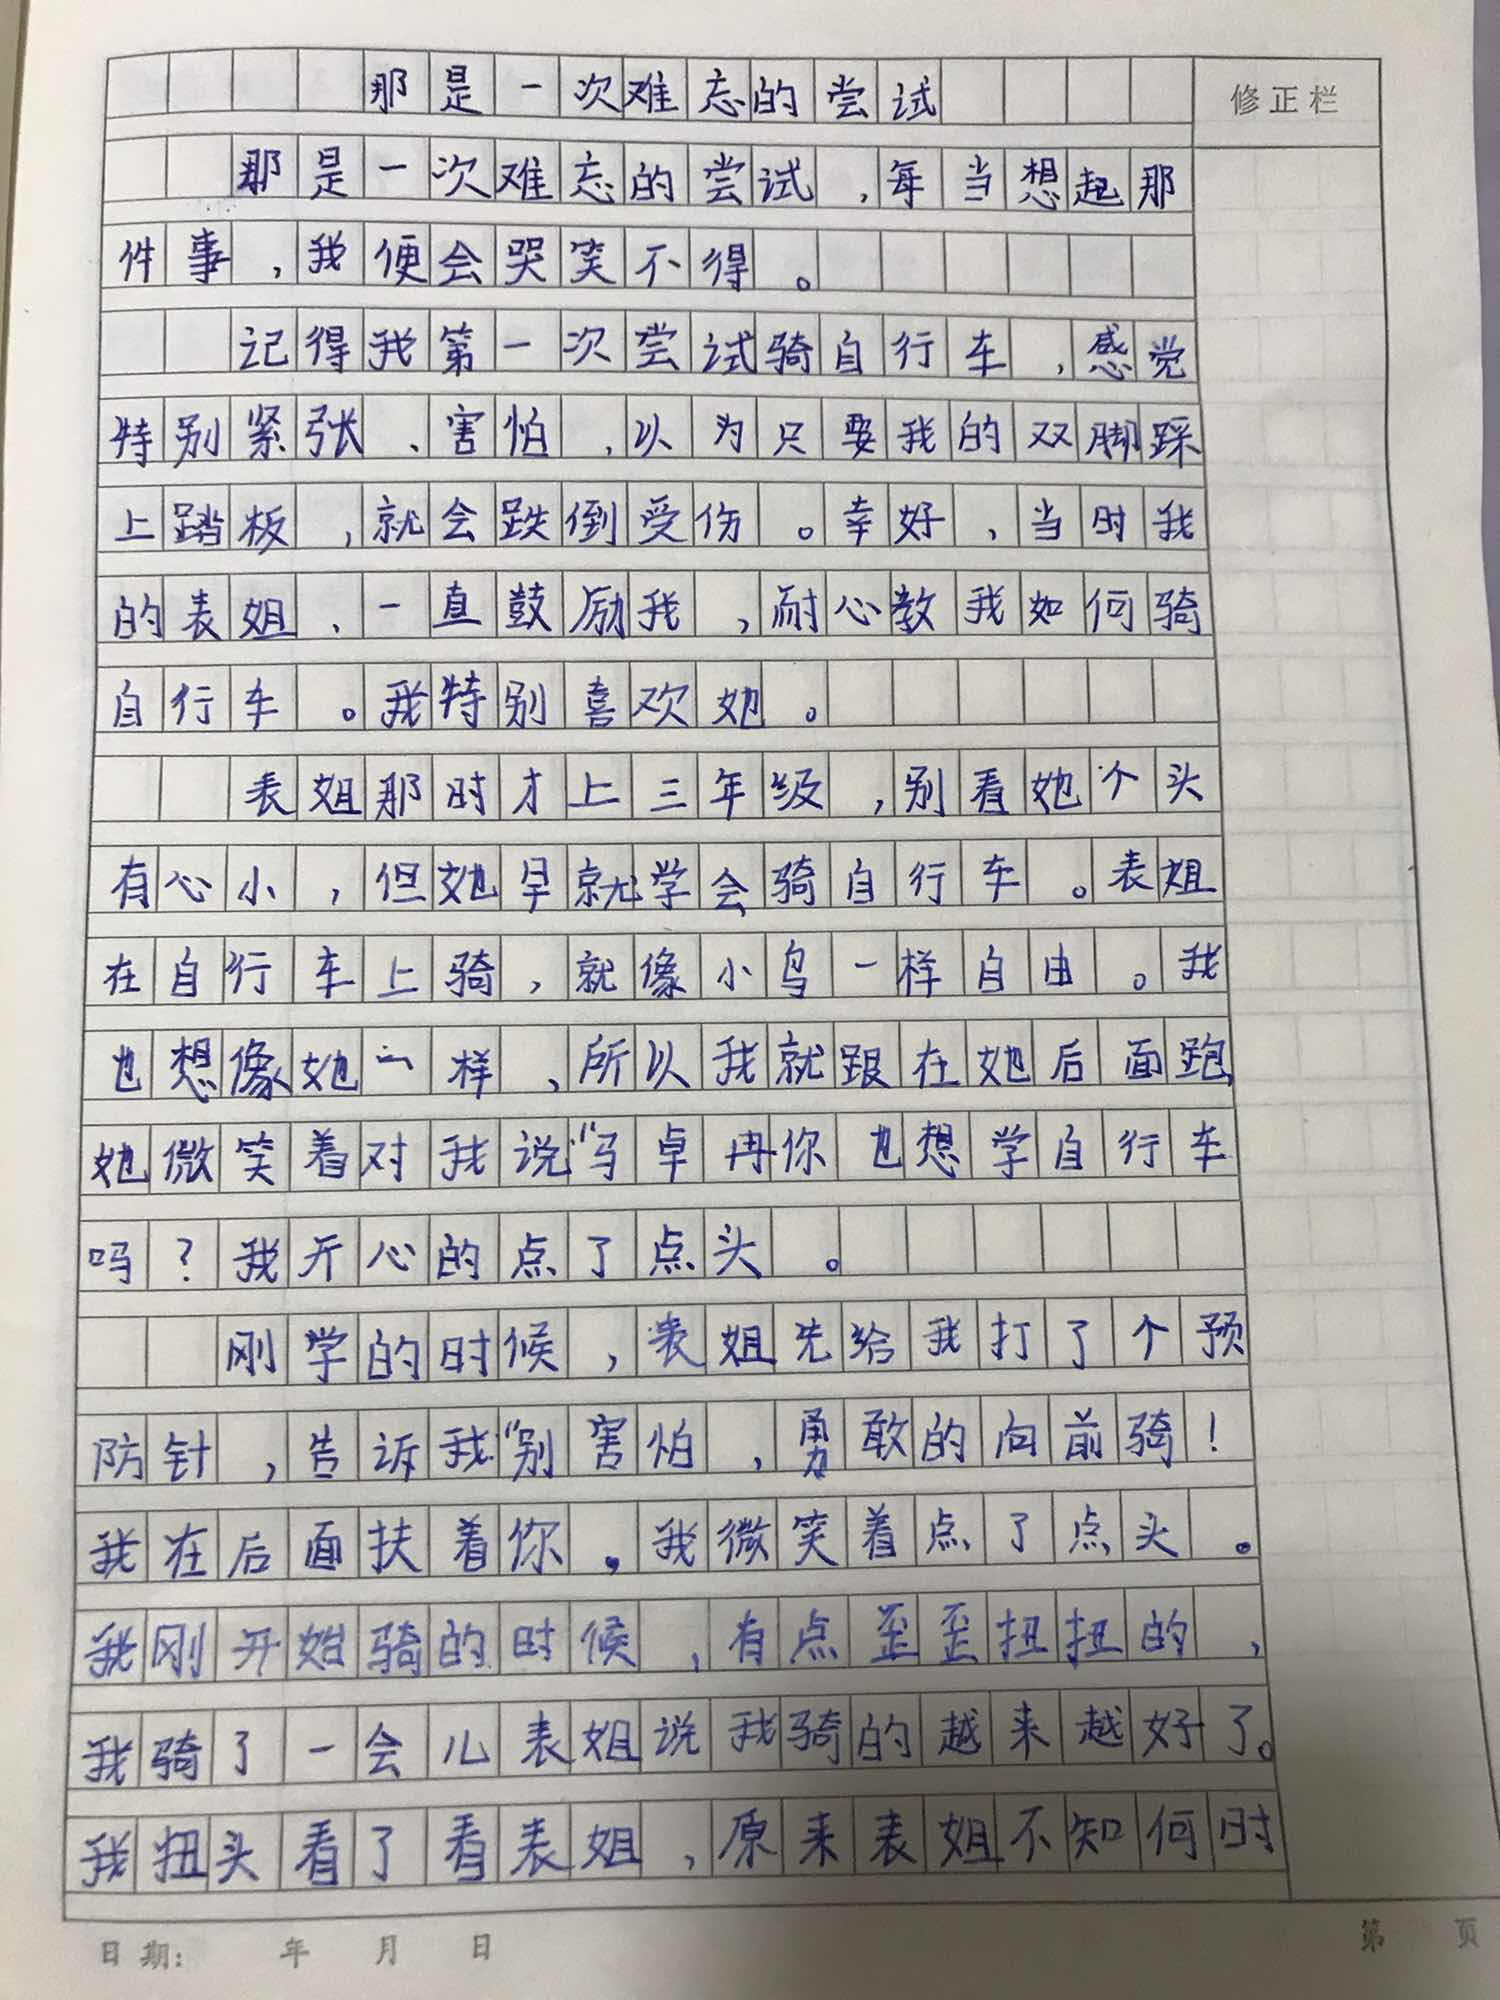 那是一次难忘的尝试
修正栏
那是一次难忘的尝试,每当想起那
件事,我便会哭笑不得。
记得我第一次尝试骑自行车,感觉
特别紧张、害怕,以为只要我的双脚踩
上踏板,就会跌倒受伤。幸好、当时我
的表姐、一直鼓励我,耐心教我如何骑
自行车。我特别喜欢她。
表姐那时才上三年级,别看她个头
有心小,但她早就学会骑自行车。表姐
在自行车上骑,就像小鸟一样自由。我
也想像她一样,所以我就跟在她后面跑,
她微笑着对我说:“马卓冉你也想学自行车
吗?我开心的点了点头。
刚学的时候,表姐先给我打了个预
防针,告诉我:“别害怕,勇敢的向前骑!
我在后面扶着你。我微笑着点了点头。
我刚开始骑的时候,有点歪歪扭扭的,
我骑了一会儿表姐说我骑的越来越好了。
我扭头看了看表姐,原来表姐不知何时
日期: 年 月 日
第 页